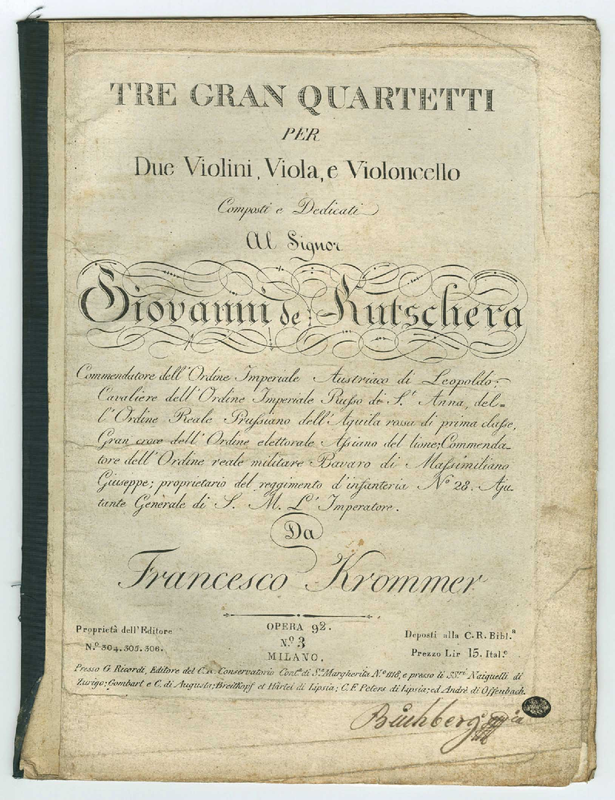 TRE GRAN QUARTETTI
PER
Due Violini, Viola, e Violoncello
Composti e Dedicati
Al Signor
Giovanni de Kutschera
Commendatore dell' Ordine Imperiale Austriaco di Leopoldo;
Cavaliere dell' Ordine Imperiale Russo di S.t Anna, del-
l' Ordine Reale Prussiano dell' Aquila rossa di prima classe,
Gran croce dell' Ordine elettorale Assiano del lione; Commenda-
tore dell' Ordine reale militare Bavaro di Massimiliano
Giuseppe; proprietario del reggimento d'infanteria N.o 28. Aju-
tante Generale di S. M. L' Imperatore.
Da
Francesco Krommer
OPERA 92.
N.o 3
MILANO.
Proprietà dell' Editore
N.o 304. 305. 306.
Deposti alla C. R. Bibl.a
Prezzo Lir 15. Ital.e
Presso G. Ricordi, Editore del C. R. Conservatorio Con.a di S.a Margherita N.o 1118, e presso li SS.ri Naiguelli di
Zurigo; Gombart e C. di Augusta; Breitkopf et Härtel di Lipsia; C. F. Peters di Lipsia; ed André di Offenbach.